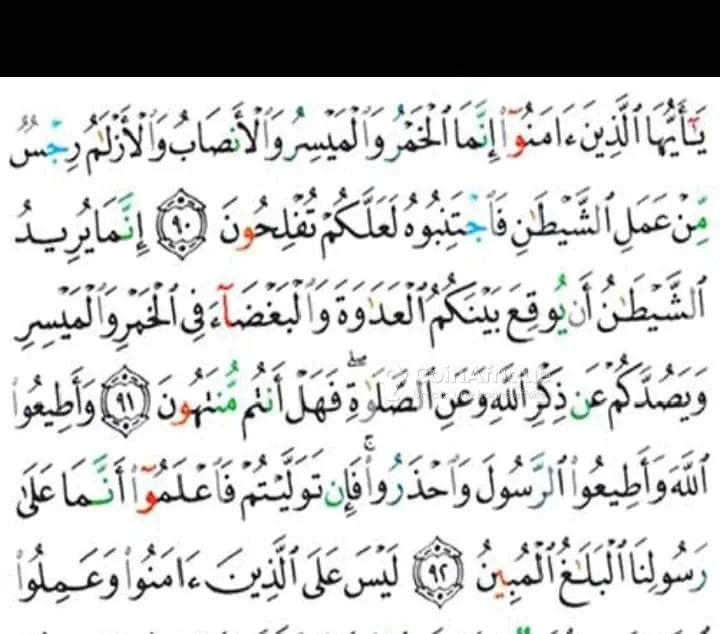 يَـٰٓأَيُّهَا ٱلَّذِينَ ءَامَنُوٓا۟ إِنَّمَا ٱلْخَمْرُ وَٱلْمَيْسِرُ وَٱلْأَنصَابُ وَٱلْأَزْلَـٰمُ رِجْسٌ
مِّنْ عَمَلِ ٱلشَّيْطَـٰنِ فَٱجْتَنِبُوهُ لَعَلَّكُمْ تُفْلِحُونَ ٩٠ إِنَّمَا يُرِيدُ
ٱلشَّيْطَـٰنُ أَن يُوقِعَ بَيْنَكُمُ ٱلْعَدَٰوَةَ وَٱلْبَغْضَآءَ فِى ٱلْخَمْرِ وَٱلْمَيْسِرِ
وَيَصُدَّكُمْ عَن ذِكْرِ ٱللَّهِ وَعَنِ ٱلصَّلَوٰةِ ۖ فَهَلْ أَنتُم مُّنتَهُونَ ٩١ وَأَطِيعُوا۟
ٱللَّهَ وَأَطِيعُوا۟ ٱلرَّسُولَ وَٱحْذَرُوا۟ ۚ فَإِن تَوَلَّيْتُمْ فَٱعْلَمُوٓا۟ أَنَّمَا عَلَىٰ
رَسُولِنَا ٱلْبَلَـٰغُ ٱلْمُبِينُ ٩٢ لَيْسَ عَلَى ٱلَّذِينَ ءَامَنُوا۟ وَعَمِلُوا۟